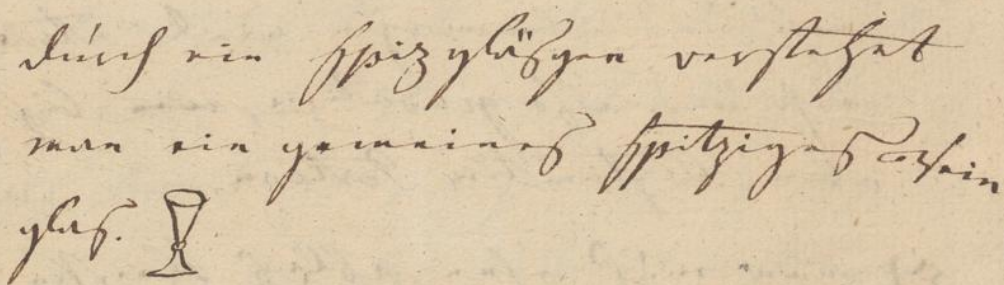 durch ein spizgläsgen verstehet
man ein gemeines spitziges Wein
glas.